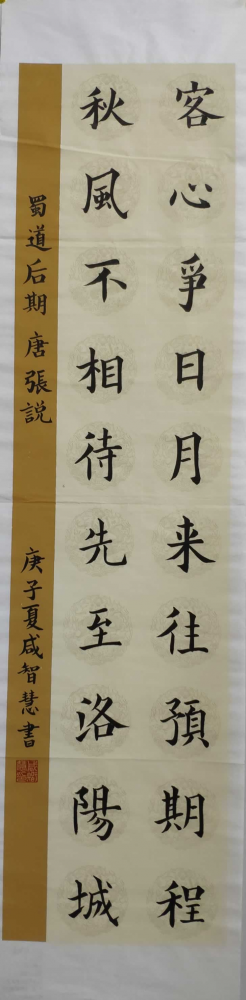 客心爭日月来往預期程
秋風不相待先至洛陽城
蜀道后期 唐 張説
庚子夏咸智慧書